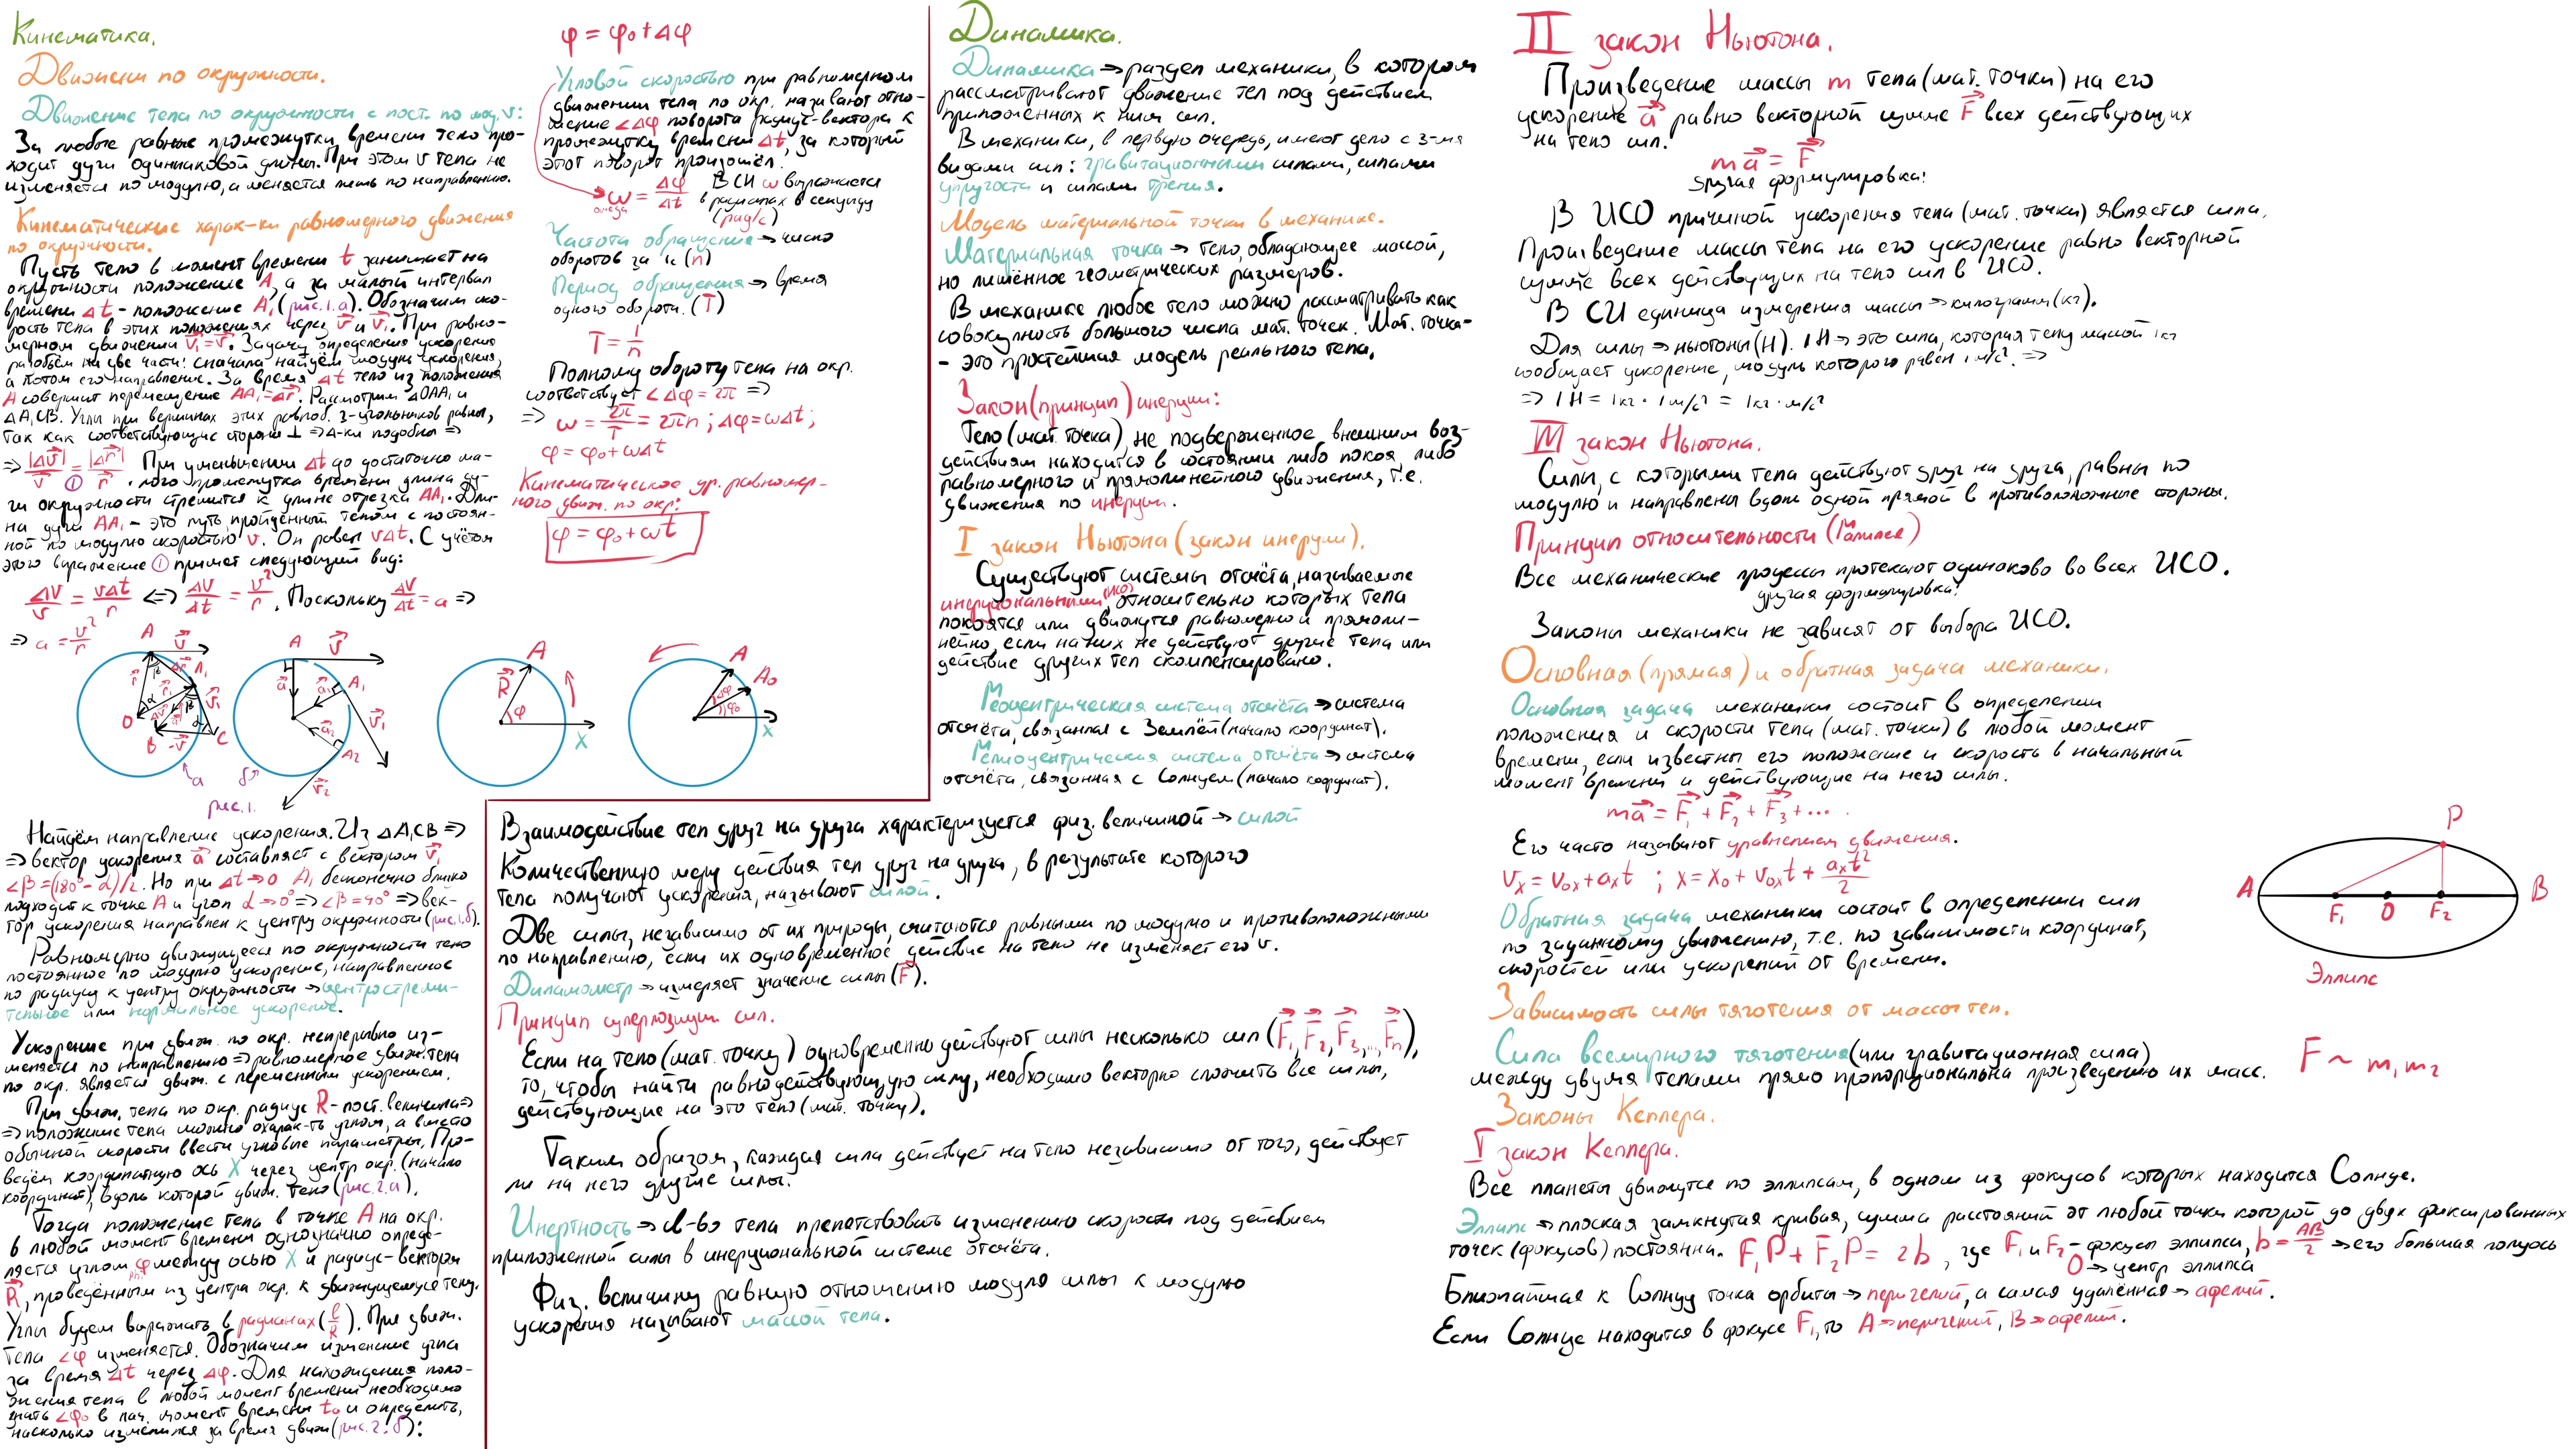 Кинематика.
Движени по окружности.
Движение тела по окружности с пост. по мод. v:
За любые равные промежутки времени тело про-
ходит дуги одинаковой длины. При этом v тела не
изменяется по модулю, а меняется лишь по направлению.
Кинематические харак-ки равномерного движения
по окружности.
Пусть тело в момент времени t занимает на
окружности положение A, а за малый интервал
времени Δt - положение A₁ (рис.1.а). Обозначим ско-
рость тела в этих положениях через v⃗ и v⃗₁. При равно-
мерном движении v₁=v. Задачу определения ускорения
разобьём на две части: сначала найдём модуль ускорения,
а потом его направление. За время Δt тело из положения
A совершит перемещение AA₁=Δr⃗. Рассмотрим ΔOAA₁ и
ΔA₁CB. Углы при вершинах этих равноб. 3-угольников равны,
так как соответствующие стороны ⊥ => Δ-ки подобны =>
=> |Δv⃗|/v = |Δr⃗|/r ①. При уменьшении Δt до достаточно ма-
лого промежутка времени длина ду-
ги окружности стремится к длине отрезка AA₁. Дли-
на дуги AA₁ - это путь, пройденный телом с постоян-
ной по модулю скоростью v. Он равен vΔt. С учётом
этого выражение ① примет следующий вид:
Δv/v = vΔt/r <=> Δv/Δt = v²/r. Поскольку Δv/Δt = a =>
=> a = v²/r
A v⃗ A₁ r⃗ Δr⃗ v⃗₁ O B -v⃗ C α β а
A v⃗ a⃗ A₁ a⃗₁ v⃗₁ a⃗₂ A₂ v⃗₂ б
рис.1.
A R⃗ φ X
A A₀ Δφ φ₀ X
Найдём направление ускорения. Из ΔA₁CB =>
=> вектор ускорения a⃗ составляет с вектором v⃗₁
∠β=(180°-α)/2. Но при Δt→0 A₁ бесконечно близко
подходит к точке A и угол α→0° => ∠β=90° => век-
тор ускорения направлен к центру окружности (рис.1.б).
Равномерно движущееся по окружности тело
постоянное по модулю ускорение, направленное
по радиусу к центру окружности → центростреми-
тельное или нормальное ускорение.
Ускорение при движ. по окр. непрерывно из-
меняется по направлению => равномерное движ. тела
по окр. является движ. с переменным ускорением.
При движ. тела по окр. радиус R - пост. величина =>
=> положение тела можно охарак-ть углом, а вместо
обычной скорости ввести угловые параметры. Про-
ведём координатную ось X через центр окр. (начало
координат), вдоль которой движ. тело (рис.2.а).
Тогда положение тела в точке A на окр.
в любой момент времени однозначно опреде-
ляется углом φ между осью X и радиус-вектором
R⃗, проведённым из центра окр. к движущемуся телу.
Углы будем выражать в радианах (l/R). При движ.
тела ∠φ изменяется. Обозначим изменение угла
за время Δt через Δφ. Для нахождения поло-
жения тела в любой момент времени необходимо
знать ∠φ₀ в нач. момент времени t₀ и определить,
насколько изменился за время движ (рис.2.б):
φ = φ₀ + Δφ
Угловой скоростью при равномерном
движении тела по окр. называют отно-
шение ∠Δφ поворота радиус-вектора к
промежутку времени Δt, за который
этот поворот произошёл.
ω = Δφ/Δt В СИ ω выражается
в радианах в секунду
омега (рад/с)
Частота обращения → число
оборотов за 1с (n)
Период обращения → время
одного оборота. (T)
T = 1/n
Полному обороту тела на окр.
соответствует ∠Δφ = 2π =>
=> ω = 2π/T = 2πn ; Δφ=ωΔt;
φ = φ₀+ωΔt
Кинематическое ур. равномер-
ного движ. по окр:
φ = φ₀ + ωt
Динамика.
Динамика → раздел механики, в котором
рассматривают движение тел под действием
приложенных к ним сил.
В механики, в первую очередь, имеют дело с 3-мя
видами сил: гравитационными силами, силами
упругости и силами трения.
Модель материальной точки в механике.
Материальная точка → тело, обладающее массой,
но лишённое геометрических размеров.
В механике любое тело можно рассматривать как
совокупность большого числа мат. точек. Мат. точка-
- это простейшая модель реального тела.
Закон (принцип) инерции:
Тело (мат. точка), не подверженное внешним воз-
действиям находится в состоянии либо покоя либо
равномерного и прямолинейного движения, т.е.
движения по инерции.
I закон Ньютона (закон инерции).
Существуют системы отсчёта, называемые
инерциальными (ИСО), относительно которых тела
покоятся или движутся равномерно и прямоли-
нейно, если на них не действуют другие тела или
действие других тел скомпенсировано.
Геоцентрическая система отсчёта → система
отсчёта, связанная с Землёй (начало координат).
Гелиоцентрическая система отсчёта → система
отсчёта, связанная с Солнцем (начало координат).
Взаимодействие тел друг на друга характеризуется физ. величиной → силой
Количественную меру действия тел друг на друга, в результате которого
тела получают ускорения, называют силой.
Две силы, независимо от их природы, считаются равными по модулю и противоположными
по направлению, если их одновременное действие на тело не изменяет его v.
Динамометр → измеряет значение силы (F⃗).
Принцип суперпозиции сил.
Если на тело (мат. точку) одновременно действуют силы несколько сил (F⃗₁, F⃗₂, F⃗₃,..., F⃗n),
то, чтобы найти равнодействующую силу, необходимо векторно сложить все силы,
действующие на это тело (мат. точку).
Таким образом, каждая сила действует на тело независимо от того, действует
ли на него другие силы.
Инертность → св-во тела препятствовать изменению скорости под действием
приложенной силы в инерциональной системе отсчёта.
Физ. величину равную отношению модуля силы к модулю
ускорения называют массой тела.
II закон Ньютона.
Произведение массы m тела (мат. точки) на его
ускорение a⃗ равно векторной сумме F⃗ всех действующих
на тело сил.
ma⃗ = F⃗
другая формулировка:
В ИСО причиной ускорения тела (мат. точки) является сила.
Произведение массы тела на его ускорение равно векторной
сумме всех действующих на тело сил в ИСО.
В СИ единица измерения массы → килограмм (кг).
Для силы → ньютоны (Н). 1Н → это сила, которая телу массой 1кг
сообщает ускорение, модуль которого равен 1 м/с². =>
=> 1Н = 1кг · 1м/с² = 1кг·м/с²
III закон Ньютона.
Силы, с которыми тела действуют друг на друга, равны по
модулю и направлены вдоль одной прямой в противоположные стороны.
Принцип относительности (Галилея)
Все механические процессы протекают одинаково во всех ИСО.
другая формулировка:
Законы механики не зависят от выбора ИСО.
Основная (прямая) и обратная задача механики.
Основная задача механики состоит в определении
положения и скорости тела (мат. точки) в любой момент
времени, если известны его положение и скорость в начальный
момент времени и действующие на него силы.
ma⃗ = F⃗₁ + F⃗₂ + F⃗₃ +...
Его часто называют уравнением движения.
vₓ = v₀ₓ+aₓt ; x = x₀ + v₀ₓt + aₓt²/2
Обратная задача механики состоит в определении сил
по заданному движению, т.е. по зависимости координат,
скоростей или ускорений от времени.
Зависимость силы тяготения от массы тел.
Сила всемирного тяготения (или гравитационная сила)
между двумя телами прямо пропорциональна произведению их масс.
F ~ m₁m₂
Законы Кеплера.
I закон Кеплера.
Все планеты движутся по эллипсам, в одном из фокусов которых находится Солнце.
Эллипс → плоская замкнутая кривая, сумма расстояний от любой точки которой до двух фиксированных
точек (фокусов) постоянна. F₁P + F₂P = 2b, где F₁ и F₂ - фокусы эллипса, b = AB/2 → его большая полуось
O → центр эллипса
Ближайшая к Солнцу точка орбиты → перигелий, а самая удалённая → афелий.
Если Солнце находится в фокусе F₁, то A → перигелий, B → афелий.
P
A F₁ O F₂ B
Эллипс